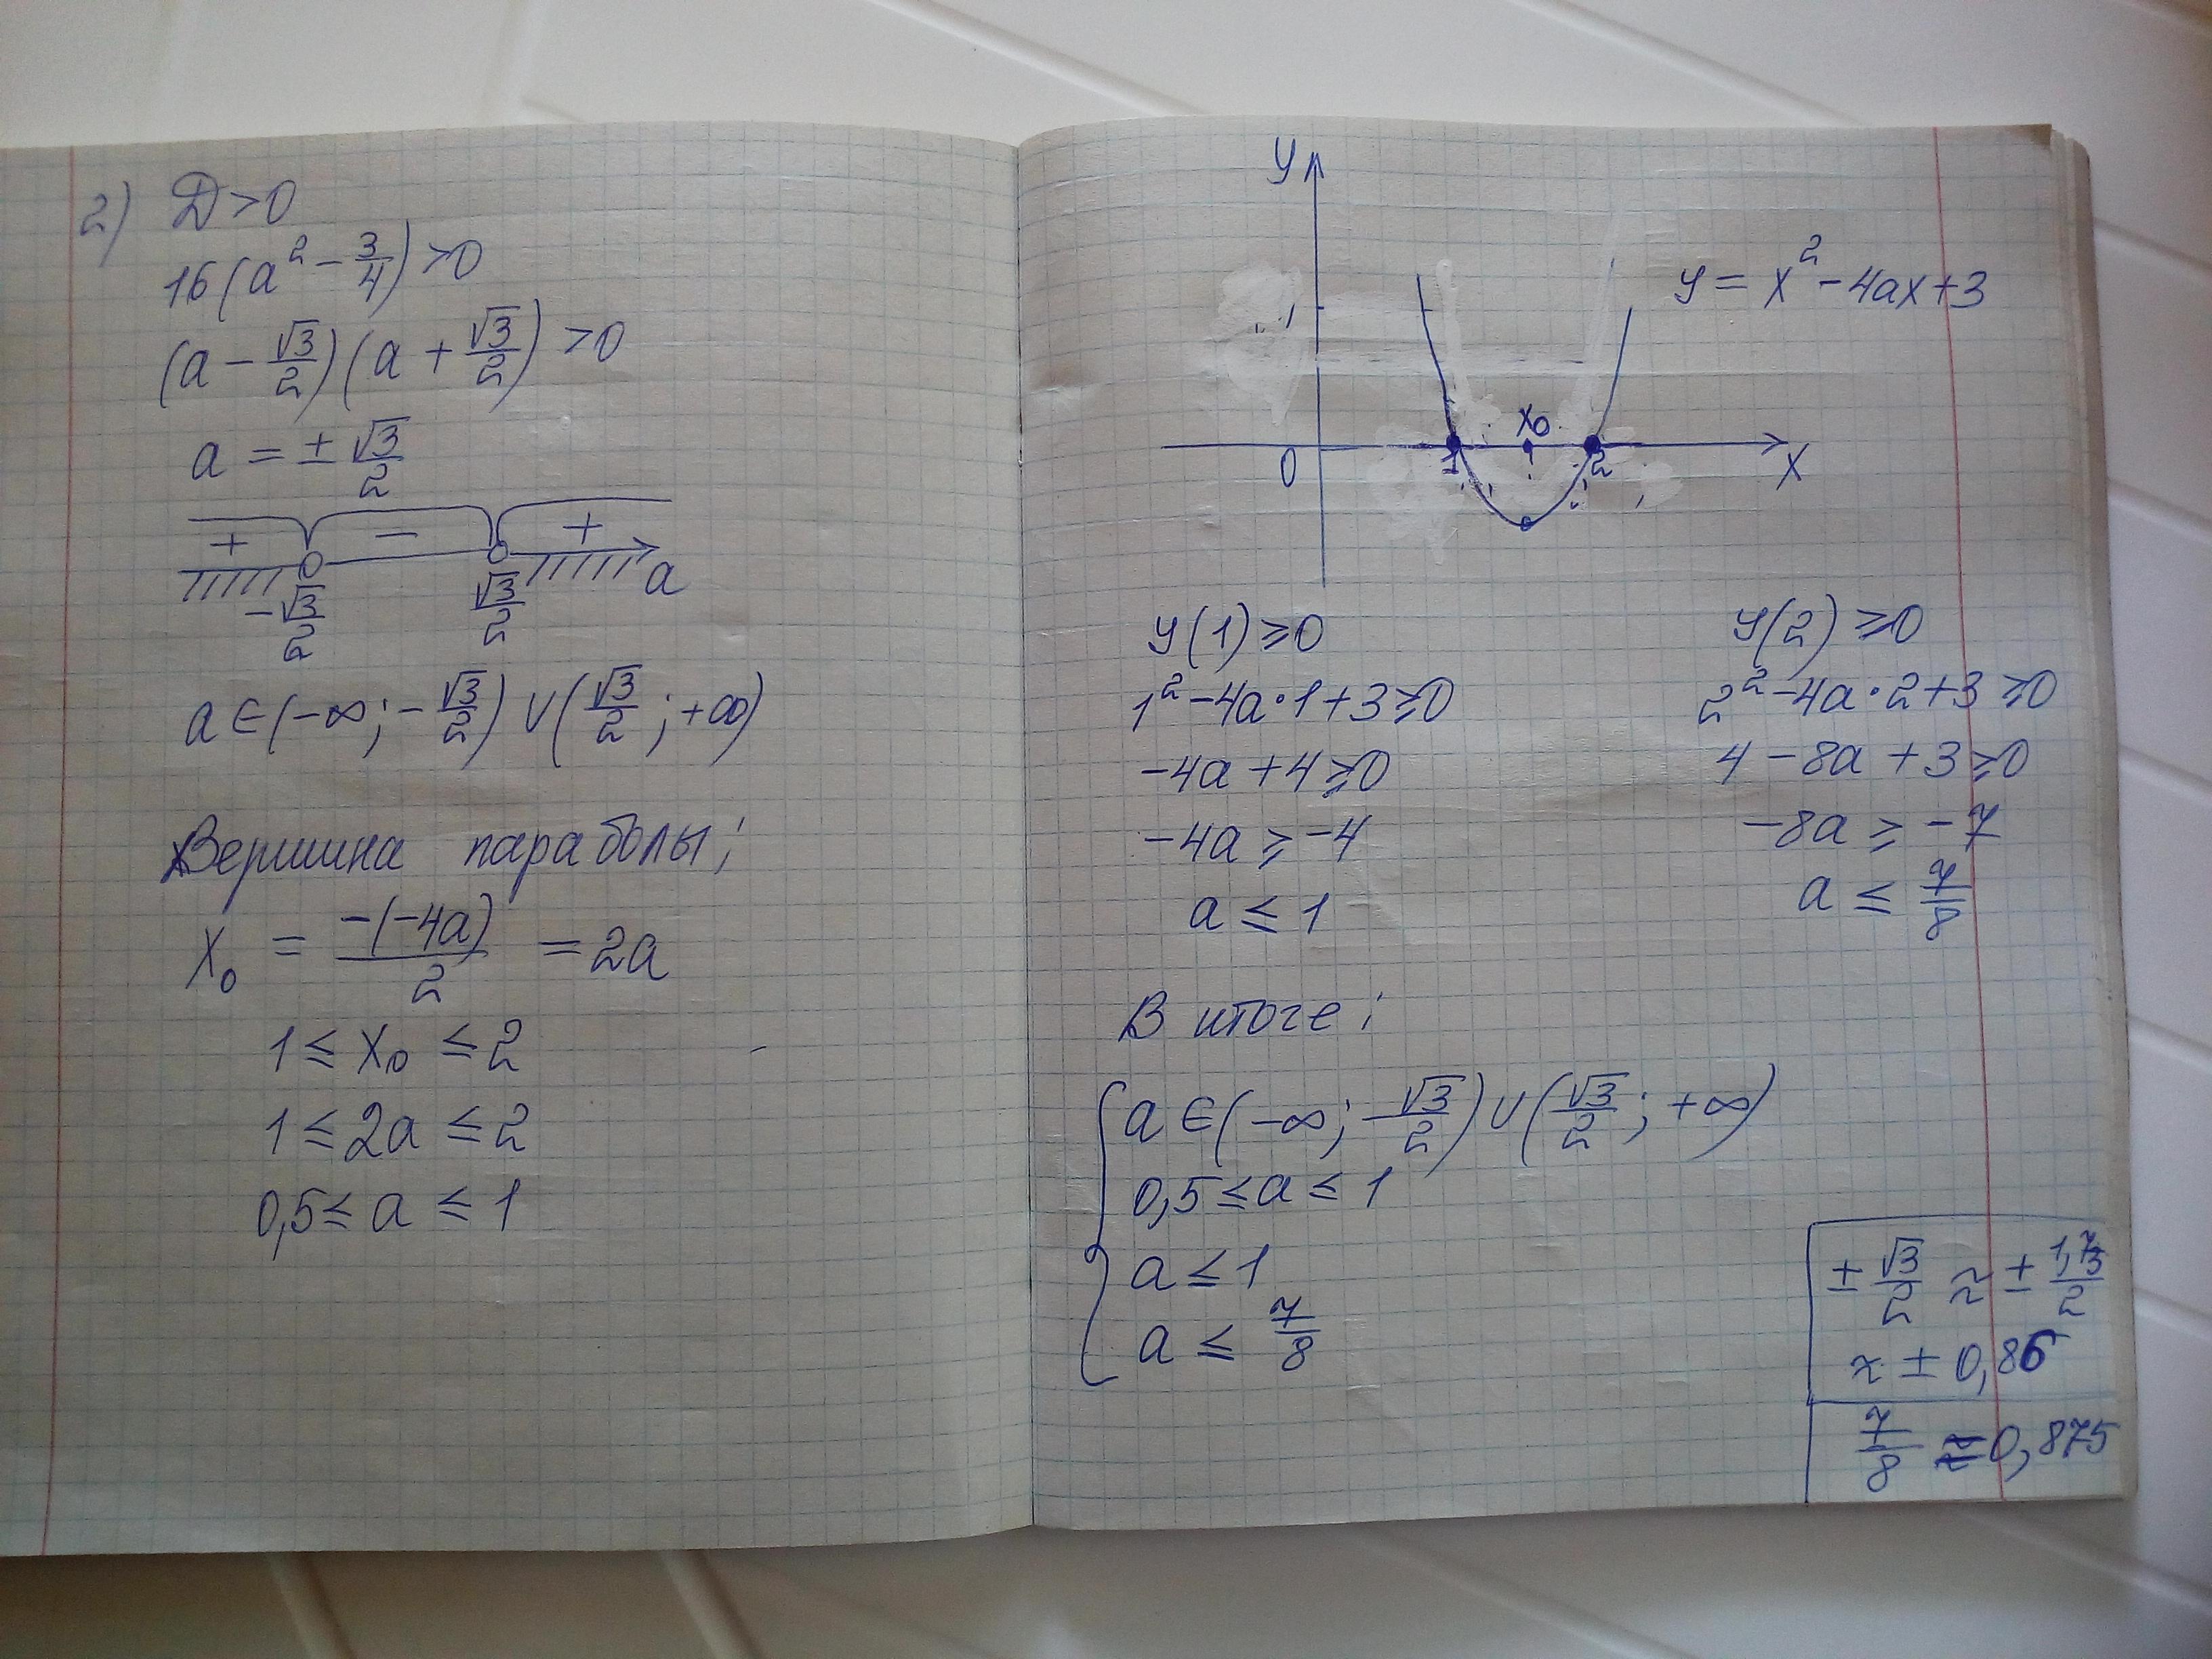 2) D>0
16(a² - 3/4) >0
(a - √3/2)(a + √3/2) >0
a = ± √3/2
+ - +
-√3/2 √3/2 a
a ∈ (-∞; -√3/2) ∪ (√3/2; +∞)
Вершина параболы:
x₀ = -(-4a)/2 = 2a
1 ≤ x₀ ≤ 2
1 ≤ 2a ≤ 2
0,5 ≤ a ≤ 1
y
y = x² - 4ax + 3
1
x₀
0 1 2 x
y(1) ≥ 0
1² - 4a·1 + 3 ≥ 0
-4a + 4 ≥ 0
-4a ≥ -4
a ≤ 1
y(2) ≥ 0
2² - 4a·2 + 3 ≥ 0
4 - 8a + 3 ≥ 0
-8a ≥ -7
a ≤ 7/8
В итоге:
a ∈ (-∞; -√3/2) ∪ (√3/2; +∞)
0,5 ≤ a ≤ 1
a ≤ 1
a ≤ 7/8
± √3/2 ≈ ± 1,73/2
≈ ± 0,86
7/8 = 0,875